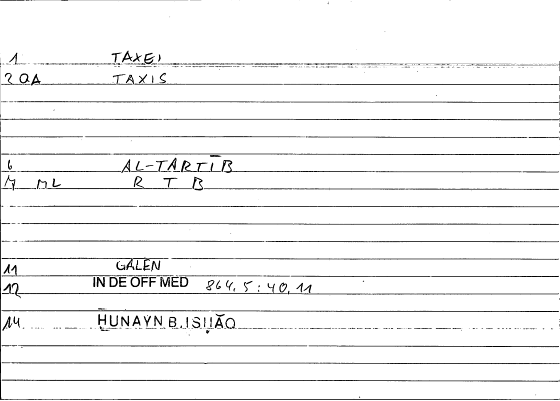 1 TAXEI
2 QA TAXIS
6 AL-TARTĪB
7 ML R T B
11 GALEN
12 IN DE OFF MED 864.5:40.11
14 HUNAYN B.ISḤĀQ